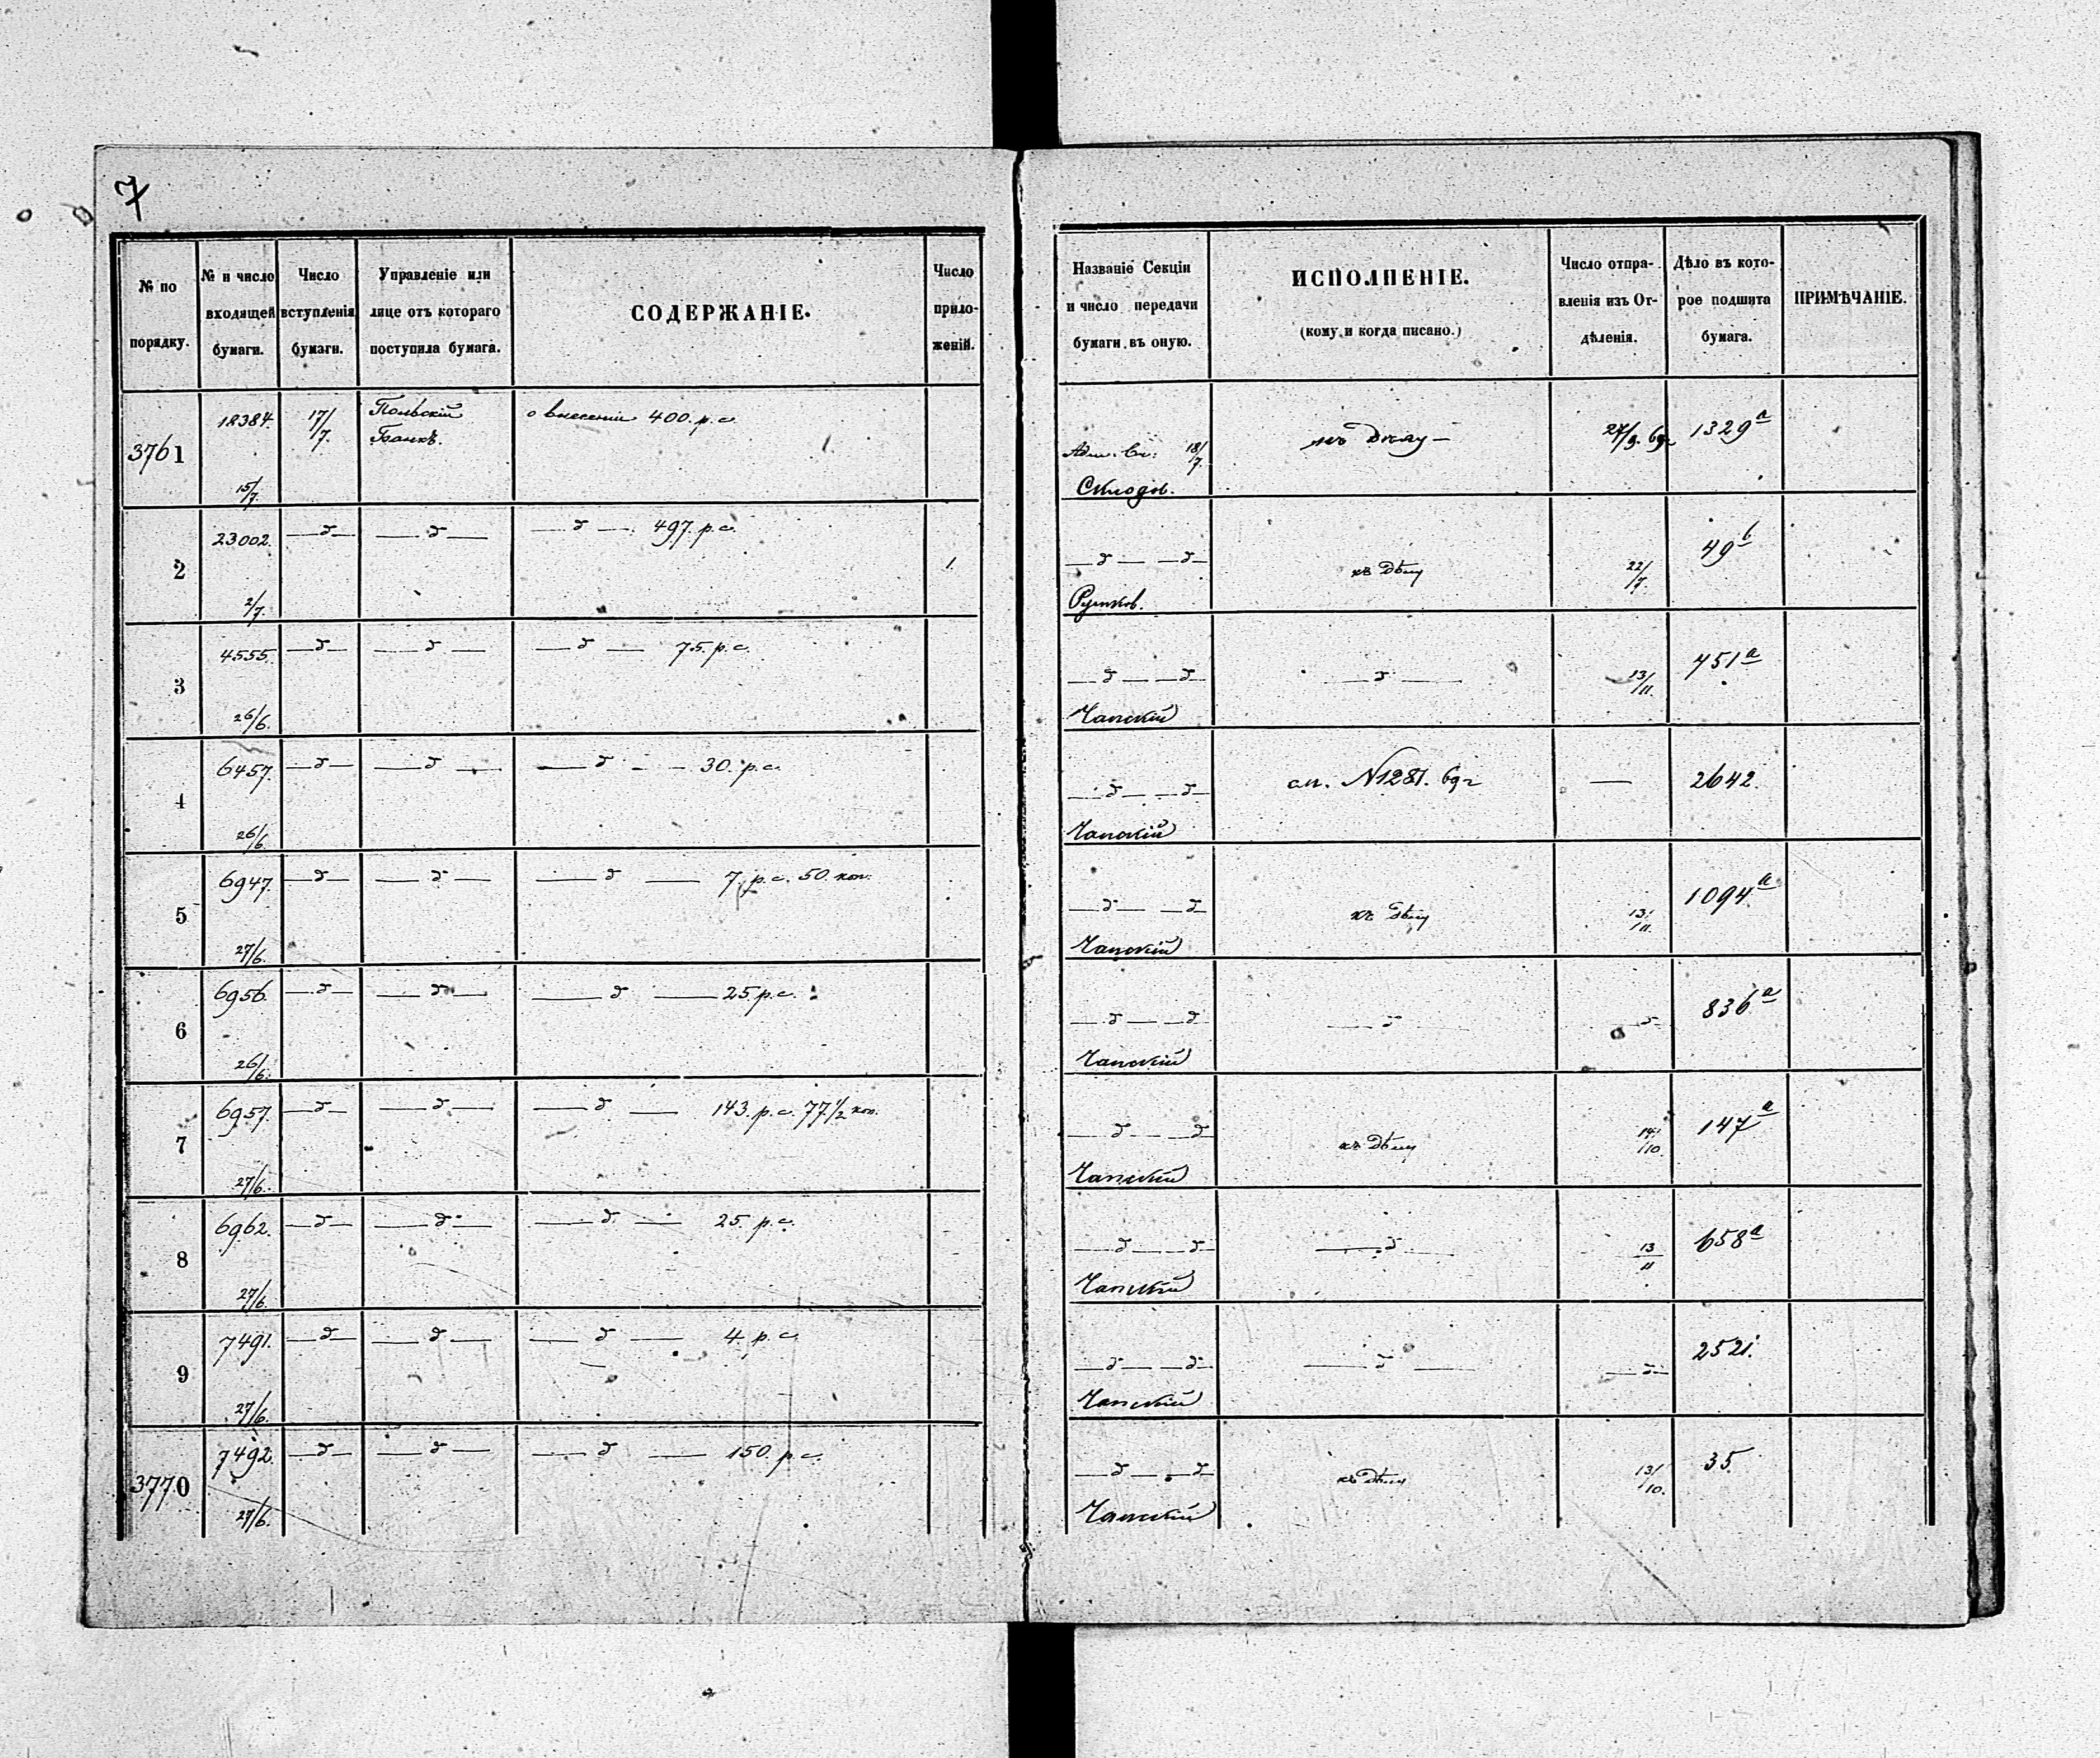 7
№ по порядку.
№ и число входящей бумаги.
Число вступленія бумаги.
Управленіе или лице отъ котораго поступила бумага.
СОДЕРЖАНІЕ.
Число приложеній.
Названіе Секціи и число передачи бумаги въ оную.
ИСПОЛНЕНІЕ.
(кому и когда писано.)
Число отправленія изъ Отдѣленія.
Дѣло въ которое подшита бумага.
ПРИМѢЧАНІЕ.
3761 18384. 15/7. 17/7. Польскій Банкъ. о внесеніи 400. р. с. 18/7. къ Дѣлу — 27/9. 69 г 1329 а
2 23002. 2/7. — д — — д — — д — 497. р. с. 1. — д — — д — къ Дѣлу 22/7. 49 b
3 4555. 26/6. — д — — д — — д — 75. р. с. — д — — д — Чапскій — д — 13/11. 451 а
4 6457. 26/6. — д — — д — — д — 30. р. с. — д — — д — Чапскій см. N 1281. 69 г — 2642.
5 6947. 27/6. — д — — д — — д — 7. р. с. 50. коп. — д — — д Чапскій къ Дѣлу 13/11. 1094 а
6 6956. 26/6. — д — — д — — д — 25 р. с. — д — — д Чапскій — д — — д — 836 а
7 6957. 27/6. — д — — д — — д — 143. р. с. 77 1/2 коп. — д — — д Чапскій къ Дѣлу 14/10. 147 а
8 6962. 27/6. — д — — д — — д — 25. р. с. — д — — д — Чапскій — д — 13/11 658 а
9 7491. 27/6. — д — — д — — д — 4. р. с. — д — — д — Чапскій — д — — д — 2521.
3770 7492. 27/6. — д — — д — — д — 150. р. с. — д — — д — Чапскій къ Дѣлу 13/10. 35.